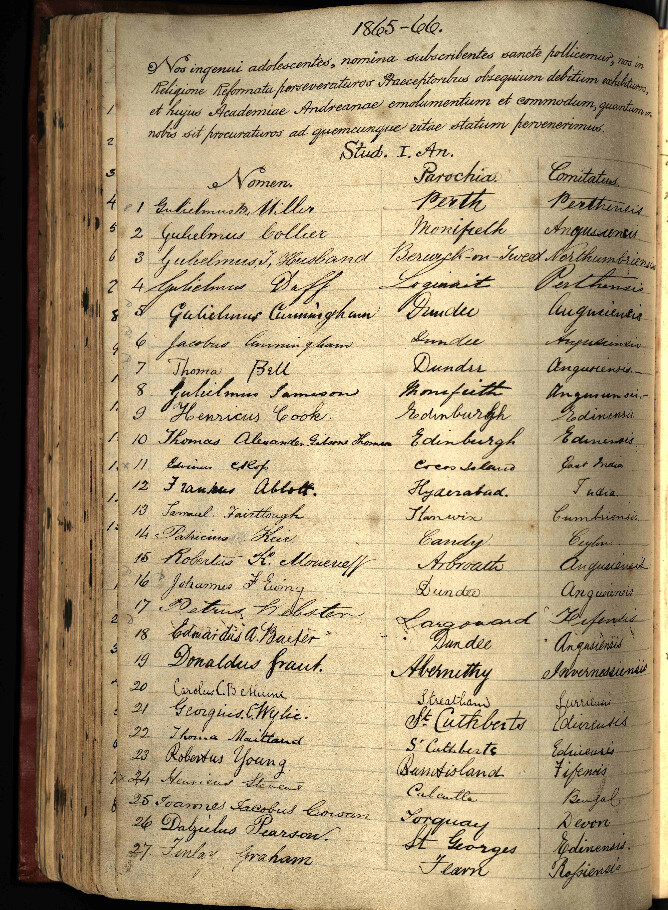 1865-66.
Nos ingenui adolescentes, nomina subscribentes sancte pollicemur, nos in
Religione Reformata perseveraturos Praeceptoribus obsequium debitum exhibituros,
et hujus Academiae Andreanae emolumentum et commodum, quantum in
nobis sit procuraturos ad quemcunque vitae statum pervenerimus.
Stud. I. An.
Nomen. Parochia Comitatus.
1 Gulielmus Miller Perth Perthensis
2 Gulielmus Collier Monifieth Angusensis
3 Gulielmus, T, Husband Berwick-on-Tweed Northumbriensis
4 Gulielmus Duff Perthensis
5 Gulielmus Cunningham Dundee Angusiensis
6 Jacobus Cunningham Dundee Angusiensis
7 Thoma Bell Dundee Angusiensis
8 Gulielmus Jameson Monifieth Angusiensis.
9 Henricus Cook. Edinburgh Edinensis
10 Thomas Alexander Gibsone Thomson Edinburgh Edinensis
11 Cocos Island East India
12 Abbott. Hyderabad. India
13 Samuel Fairtlough Stanwix Cumbriensis
14 Patricius Keir Candy Ceylon
15 Robertus K. Moncrieff Arbroath Angusiensis
16 Johannes F. Ewing Dundee Angusiensis
17 Petrus Webster Largoward Fifensis
18 Eduardus A. Baxter Dundee Angusiensis
19 Donaldus Grant. Abernithy Invernessiensis
20 Carolus C. Bethune Streatham Surriensis
21 Georgius C. Wylie. St. Cuthberts Edinensis
22 Thoma Maitland St Cuthberts Edinensis
23 Robertus Young Burntisland Fifensis
24 Henricus Stevens Calcutta Bengal
25 Joannes Jacobus Cowan Torquay Devon
26 Dalzielus Pearson. St Georges Edinensis.
27. Finlay Graham Fearn Rossiensis